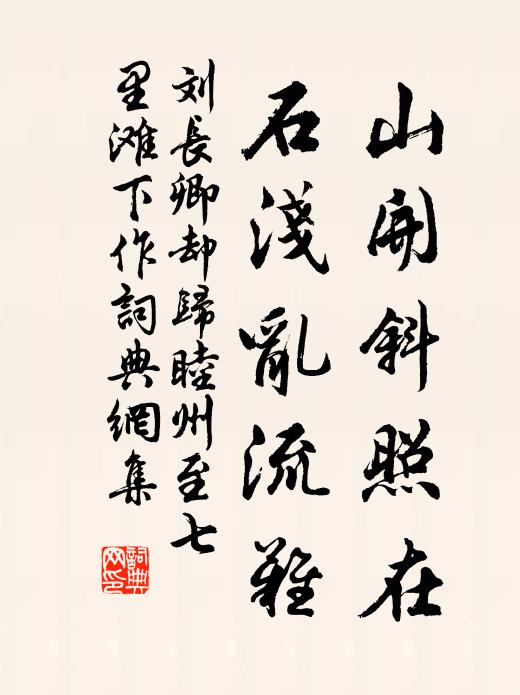 山開斜照在
石淺亂流難
刘長卿却歸睦州至七
里滩下作詞典網集
詞典網印